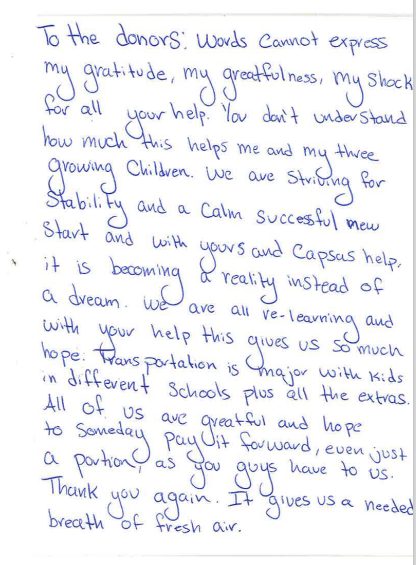 To the donors: Words Cannot express
my gratitude, my greatfulness, my shock
for all your help. You don't understand
how much this helps me and my three
growing Children. We are Striving for
Stability and a Calm Successful new
Start and with yours and Capsas help,
it is becoming a reality instead of
a dream. We are all re-learning and
with your help this gives us so much
hope. Transportation is major with kids
in different Schools plus all the extras.
All of us are greatful and hope
to Someday pay it forward, even just
a portion, as you guys have to us.
Thank you again. It gives us a needed
breath of fresh air.